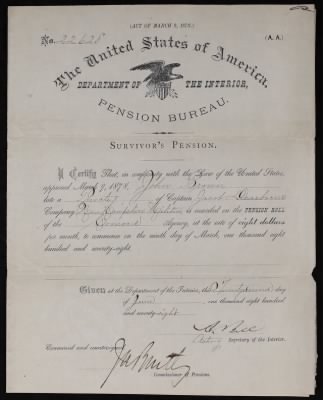 (ACT OF MARCH 9, 1878.)
No. 22628
(A. A.)
The United States of America,
DEPARTMENT OF THE INTERIOR,
PENSION BUREAU.
SURVIVOR'S PENSION.
I Certify That, in conformity with the Law of the United States,
approved March 9, 1878, John Brown
late a Private of Captain Jacob
Company New Hampshire Militia is inscribed on the PENSION ROLL
of the Concord Agency, at the rate of eight dollars
per month, to commence on the ninth day of March, one thousand eight
hundred and seventy-eight.
Given at the Department of the Interior, this day
of June one thousand eight hundred
and seventy-eight
Acting Secretary of the Interior.
Examined and countersigned
Commissioner of Pensions.